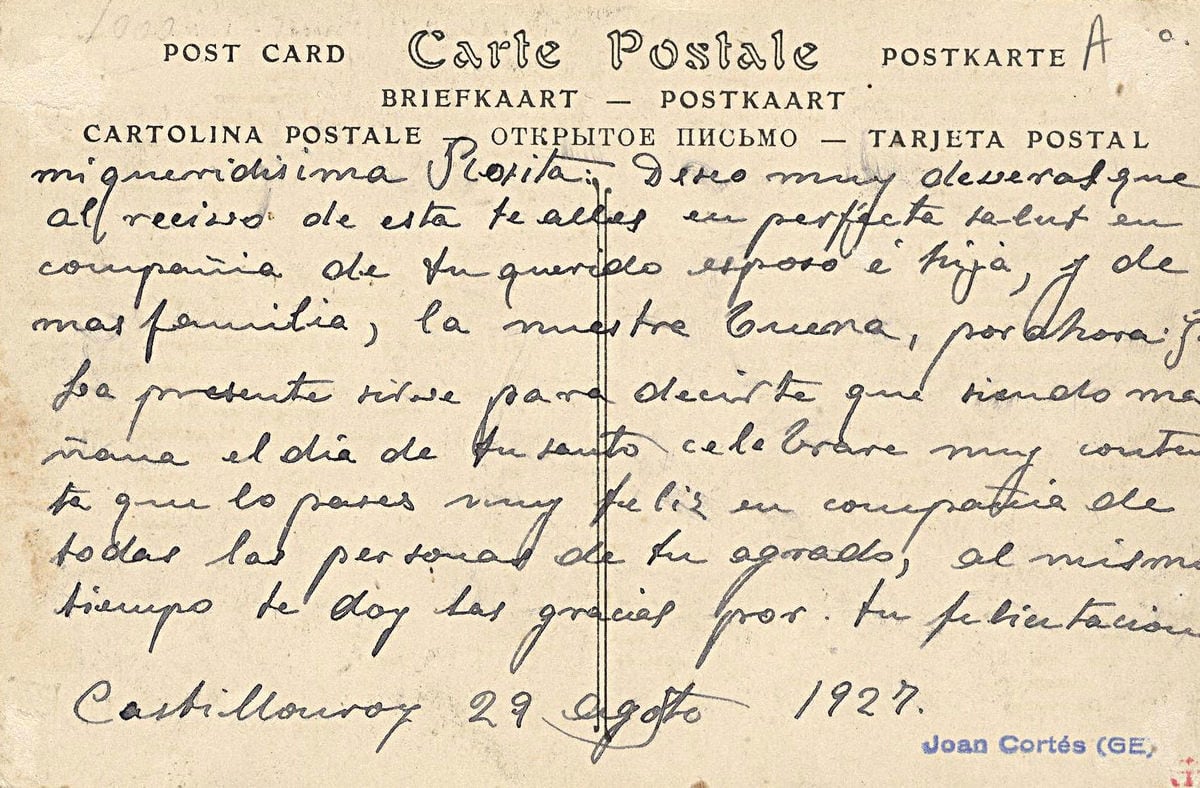 POST CARD Carte Postale POSTKARTE A
BRIEFKAART — POSTKAART
CARTOLINA POSTALE — ОТКРЫТОЕ ПИСЬМО — TARJETA POSTAL
mi queridisima Rosita: Deseo muy deveras que
al recivo de esta te alles en perfecta salut en
compañia de tu querido esposo é hija, y de
mas familia, la nuestra buena, por ahora:
La presente sirve para decirte que siendo ma
ñana el dia de tu santo celebrare muy conten
ta que lo pases muy feliz en compañia de
todas las personas de tu agrado, al mismo
tiempo te doy las gracias por. tu felicitacion
Castillonroy 29 agosto 1927.
Joan Cortés (GE)